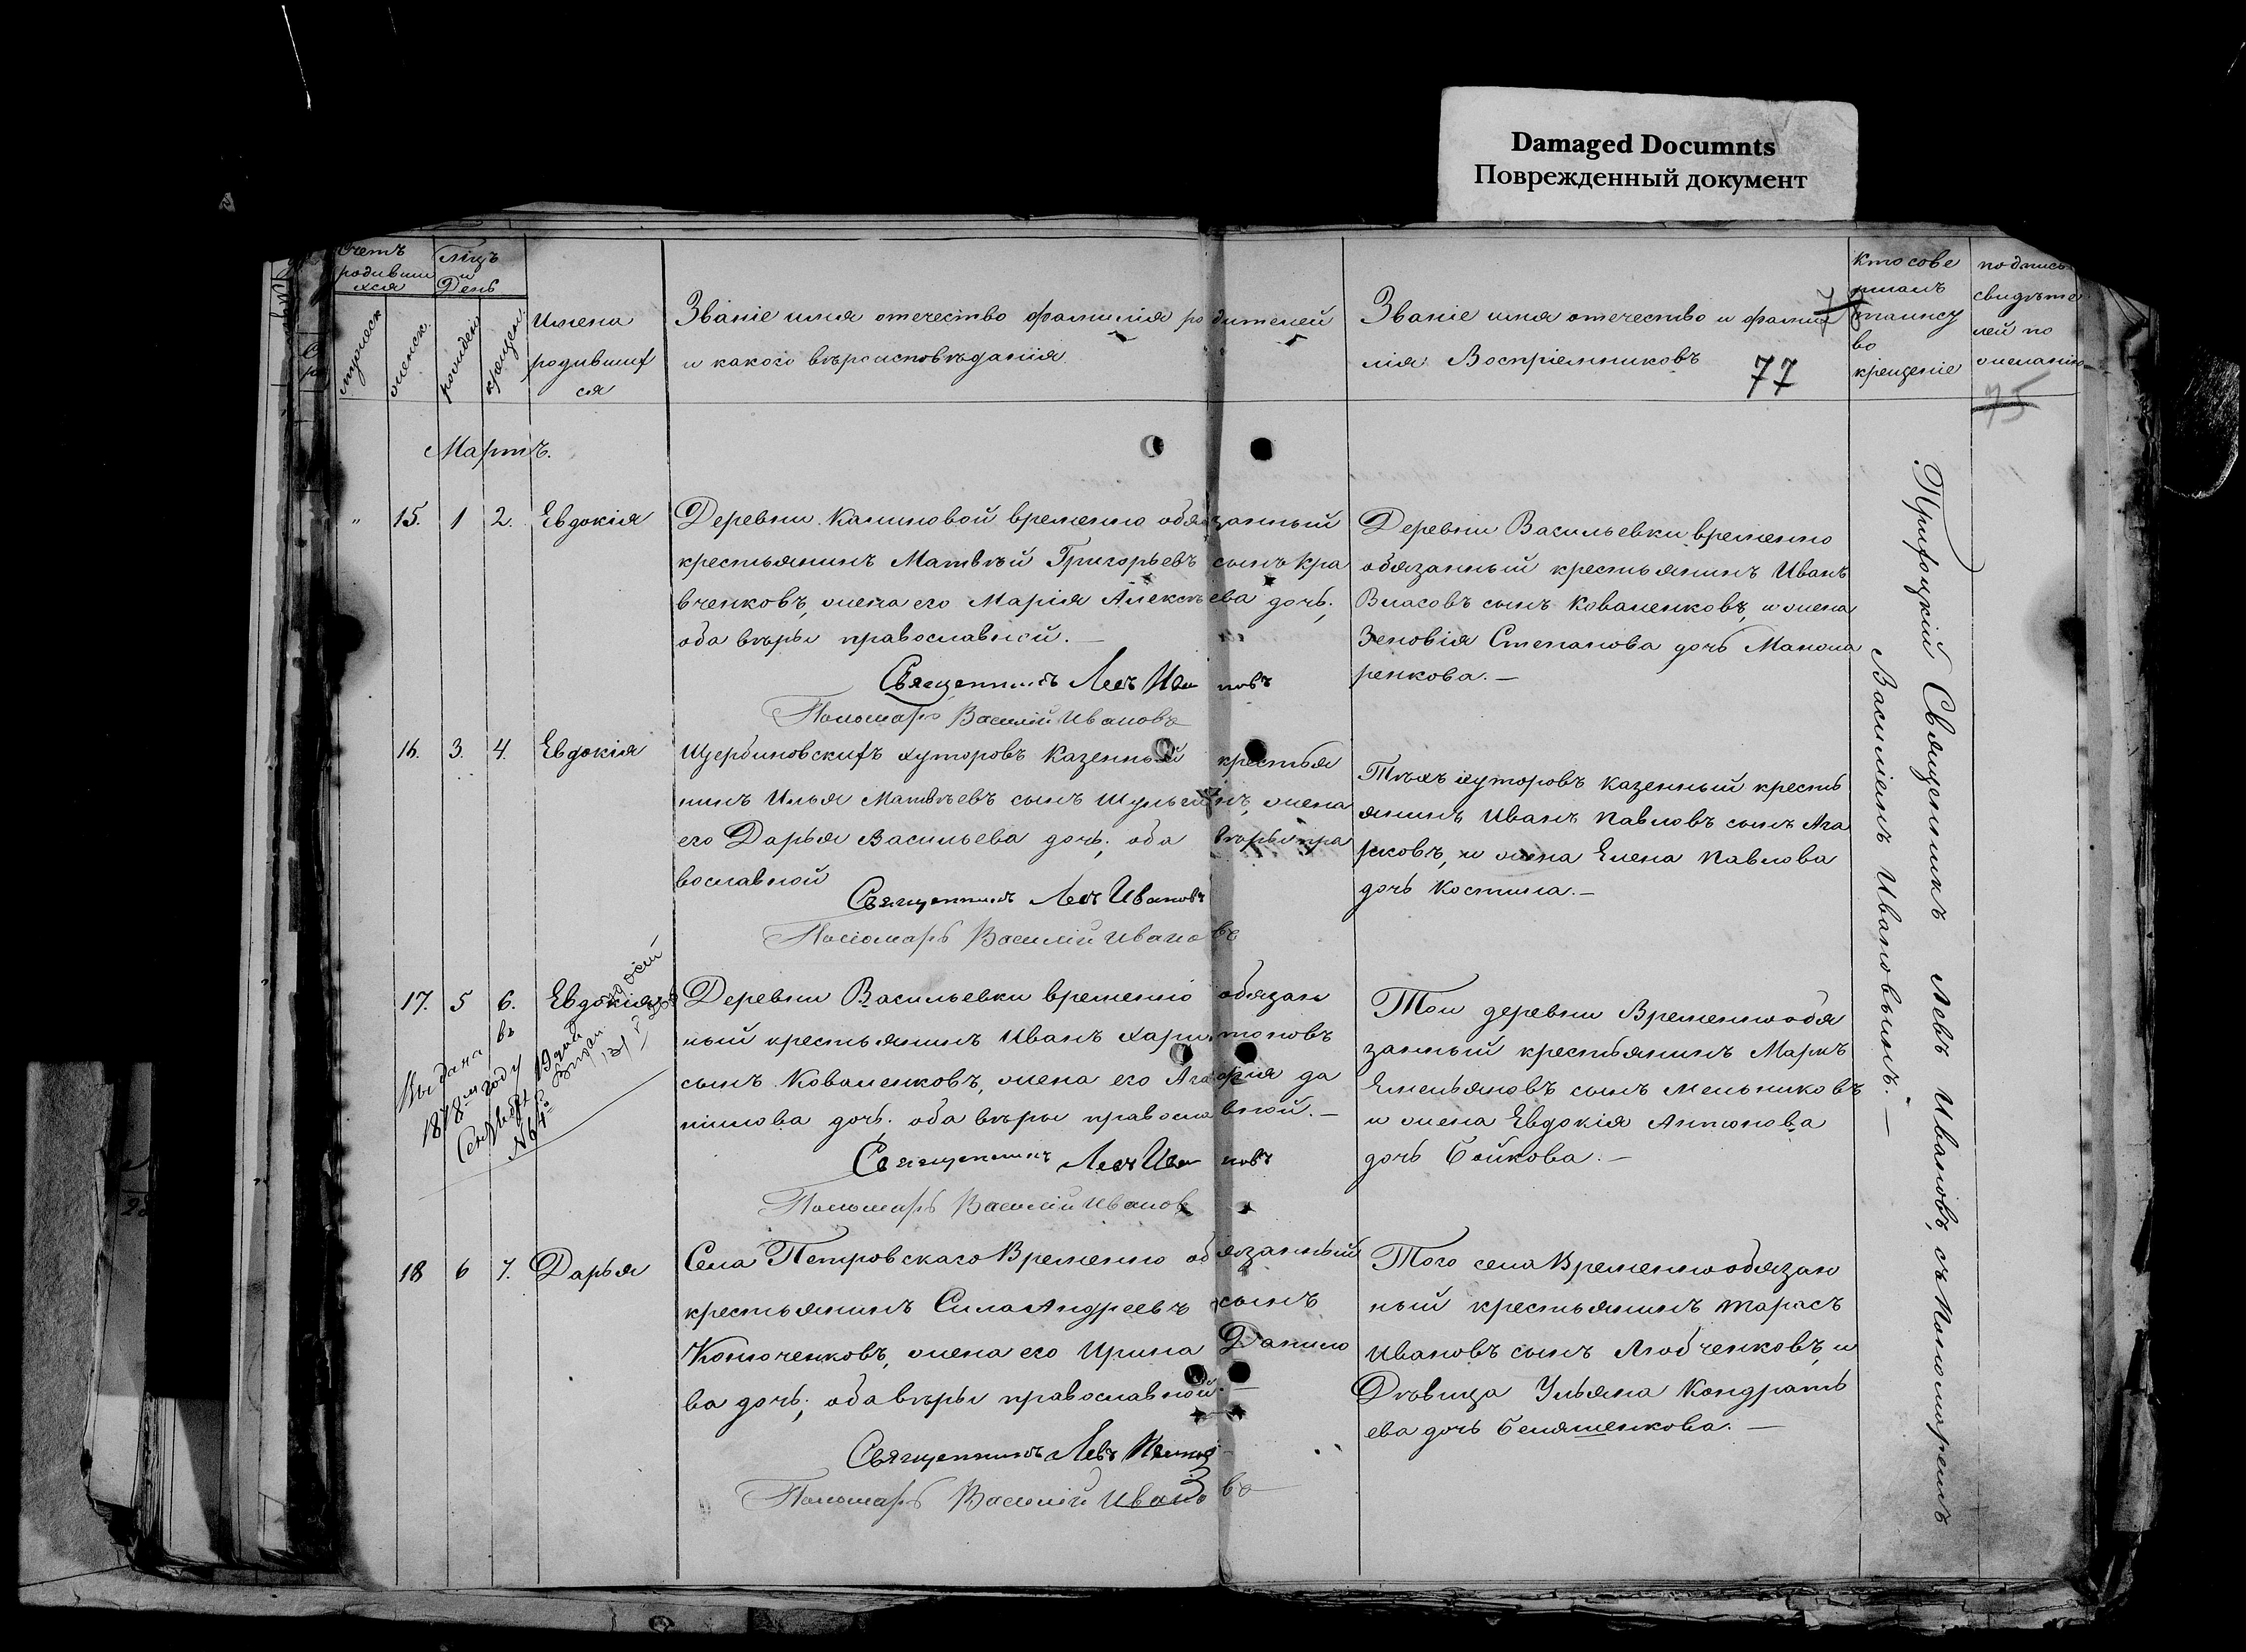 Damaged Documnts
Поврежденный документ
Счетъ
родивши
хся
Мцъ
и
День
мужеск
женск.
рожденія
крещен.
Имена
родившиf
ся
Званіе имя отечество фамилія родителей
и какого вѣроисповѣданія
Званіе имя отечество и фами
лія Воспріемниковъ
77
Кто сове
ршалъ
таинст
во
крещеніе
подпись
свидѣте
лей по
желанію
75
Мартъ.
" 15. 1 2. Евдокія
Деревни Калиновой временно обязанный
крестьянинъ Матвѣй Григорьевъ сынъ Кра
вченковъ, жена его Марія Алексѣева дочь;
оба вѣры православной.—
Священникъ Левъ Ивановъ
Пономарь Василій Ивановъ
Деревни Васильевки временно
обязанный крестьянинъ Иванъ
Власовъ сынъ Коваленковъ, и жена
Зеновія Степанова дочь Макома
ренкова.—
16. 3. 4. Евдокія
Щербиновскиfъ хуторовъ Казенный крестья
нинъ Илья Матвѣевъ сынъ Шульгинъ, жена
его Дарья Васильева дочь; оба вѣры пра
вославной
Священникъ Левъ Ивановъ
Пономарь Василій Ивановъ
Тѣхъ хуторовъ казенный кресть
янинъ Иванъ Павловъ сынъ Ага
рковъ, и жена Елена Павлова
дочь Костина.—
17. 5 6. Евдокія
Выдана въ
1878м году
Сентября 19 дня
№ 64й
Деревни Васильевки временно обязан
ный крестьянинъ Иванъ Харитоновъ
сынъ Коваленковъ, жена его Агафія Да
нилова дочь. оба вѣры православной.—
Священникъ Левъ Ивановъ
Пономарь Василій Ивановъ
Той деревни Временнообя
занный крестьянинъ Маркъ
Емельяновъ сынъ Мельниковъ
и жена Евдокія Антонова
дочь Бойкова.—
18 6 7. Дарья
Села Петровскаго Временно обязанный
крестьянинъ Сила Андреевъ сынъ
Конюченковъ, жена его Ирина Данило
ва дочь; оба вѣры православной.—
Священникъ Левъ Ивановъ
Пономарь Василій Ивановъ
Того села Временнообязан
ный крестьянинъ Тарасъ
Ивановъ сынъ Любченковъ, и
Дѣвица Ульяна Кондрать
ева дочь Беляшенкова.—
Приfоцкій Священникъ Левъ Ивановъ, съ Пономаремъ
Василіемъ Ивановымъ.—